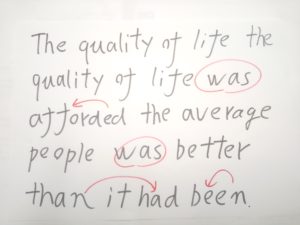 The quality of life the
quality of life was
afforded the average
people was better
than it had been.